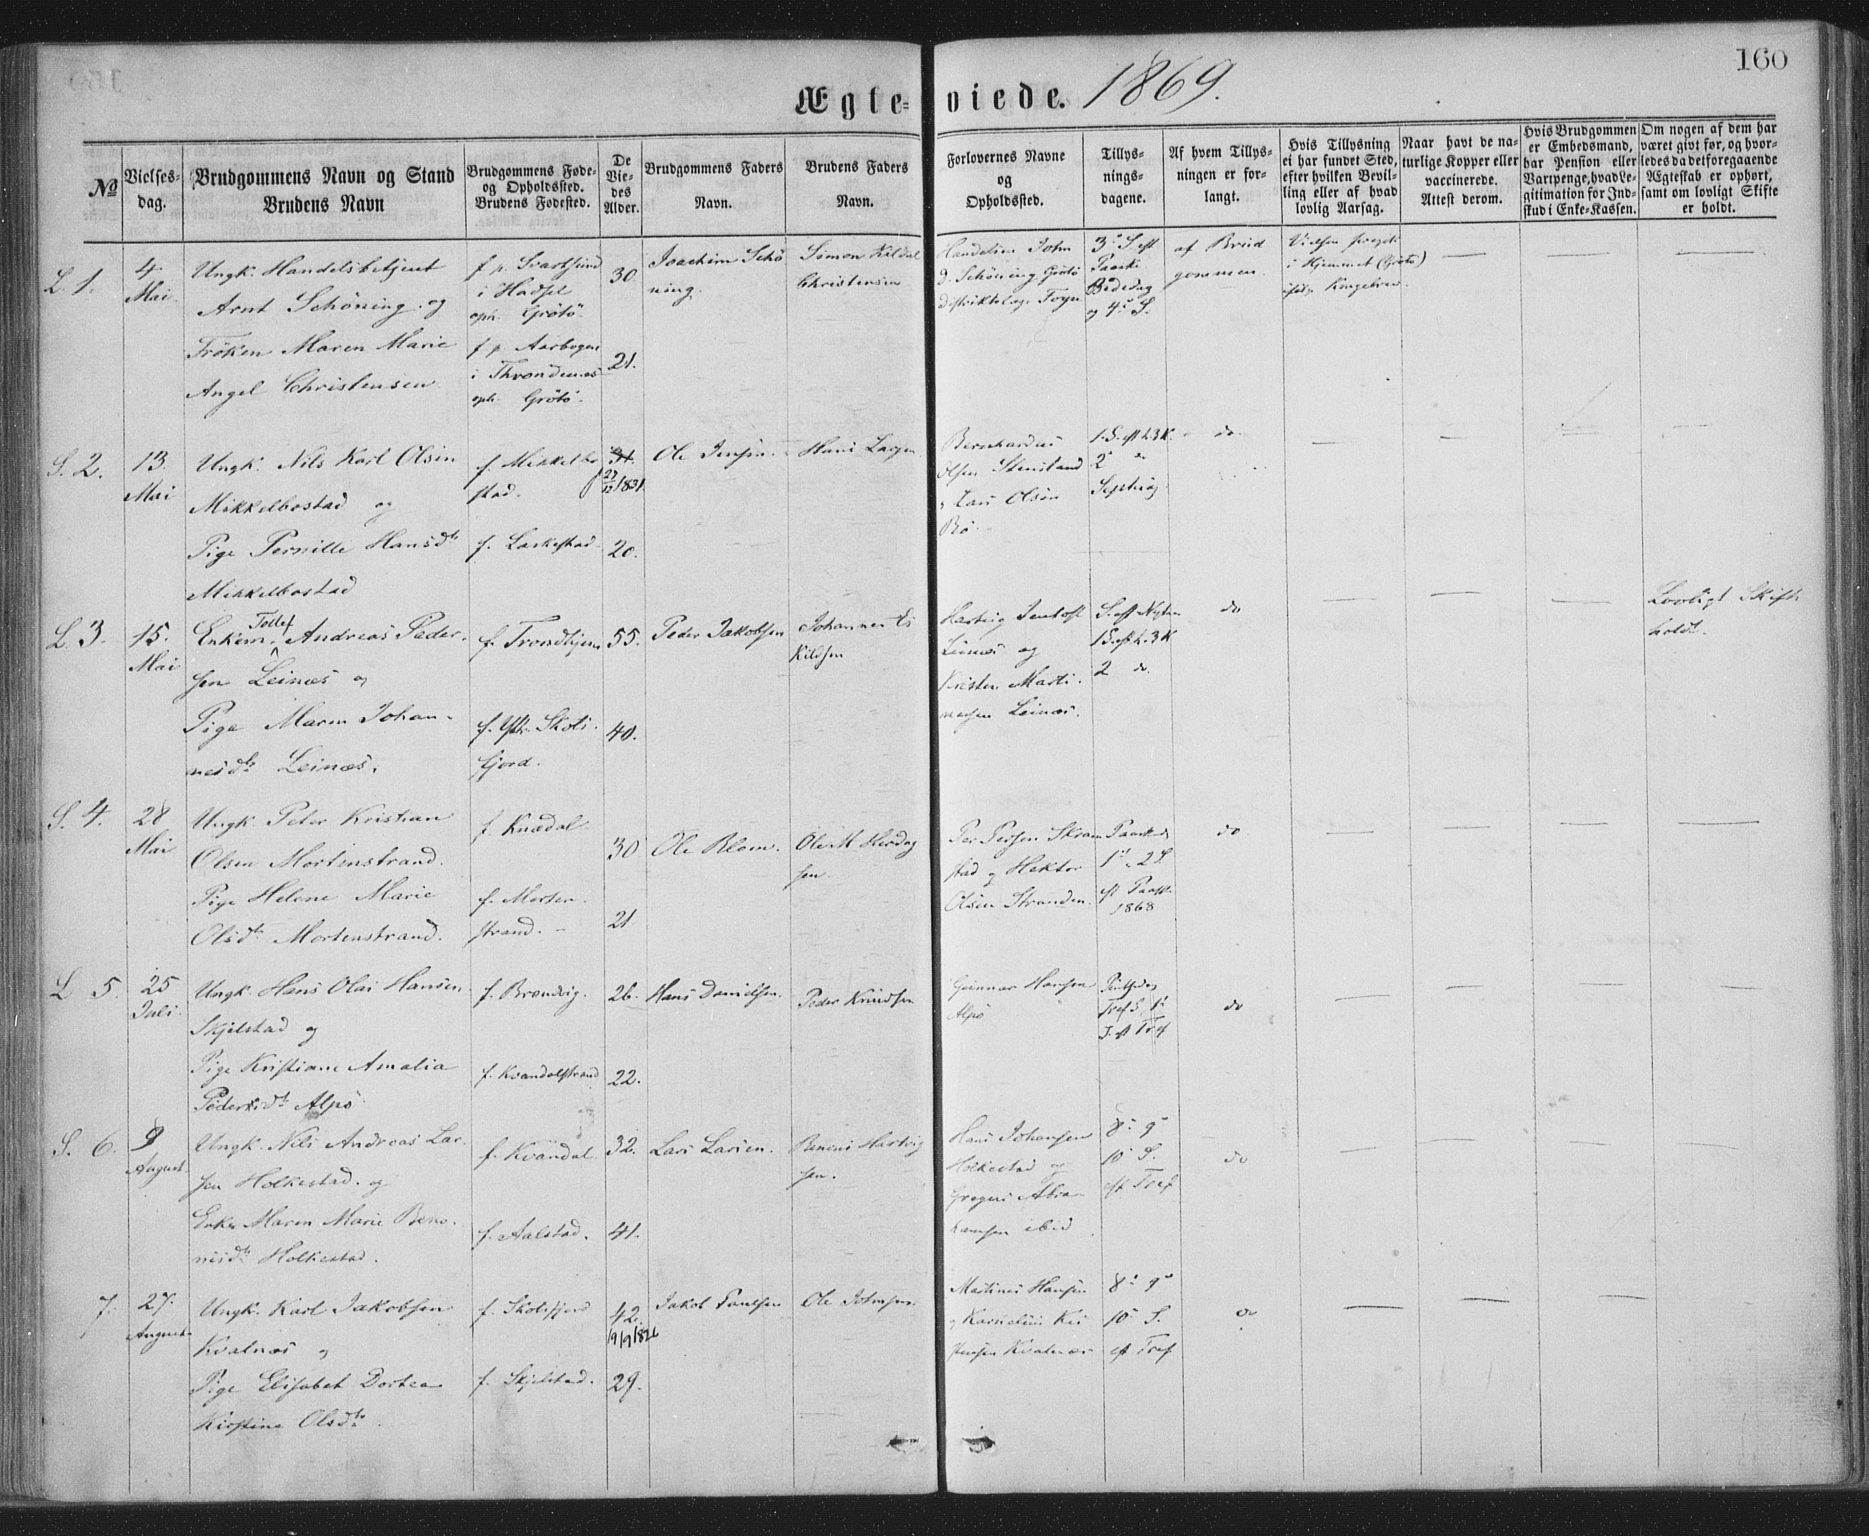 160
Ægte-viede. 1869.
№
Vielses-
dag.
Brudgommens Navn og Stand
Brudens Navn
Brudgommens Føde-
og Opholdssted.
Brudens Fødested.
De
Vie-
des
Alder.
Brudgommens Faders
Navn.
Brudens Faders
Navn.
Forlovernes Navne
og
Opholdssted.
Tillys-
nings-
dagene.
Af hvem Tillys-
ningen er for-
langt.
Hvis Tillysning
ei har fundet Sted,
efter hvilken Bevil-
ling eller af hvad
lovlig Aarsag.
Naar havt de na-
turlige Kopper eller
vaccinerede.
Attest derom.
Hvis Brudgommen
er Embedsmand,
har Pension eller
Vartpenge, hvad Le-
gitimation for Ind-
skud i Enke-Kassen.
Om nogen af dem har
været givt før, og hvor-
ledes da det foregaaende
Ægteskab er ophørt,
samt om lovligt Skifte
er holdt.
L. 1.
4
Mai
Ungk. Handelsbetjent
Arnt Schöning og
Fröken Maren Marie
Angel Christensen
f. p. Svartsund
i Hadsel
oph. Grötö.
f. p. Aarbogen
i Throndenes
oph. Grötö.
30
21.
Joachim Schö
ning.
Simon Kildal
Christensen
Handelsm John
d. Schöning Grötö
Distriktslæge
3. S. eft
Paaske
Bededag
og 4. S.
af Brud
gommen.
Vielsen
i Hjemmet (Grötö)
Kongebrev.
S. 2.
13.
Mai
Ungk. Nils Karl Olsen
Mikkelbostad og
Pige Pernille Hansdtr
Mikkelbostad
f. Mikkelbo
stad.
f. Laskestad
27/12 1831.
20.
Ole Jensen
Hans Larsen
Bernhardus
Olsen Stenstand
Lars Olsen
Bö.
1. S. eft h. 3 K.
2 "
Septuag
do.
L. 3.
15.
Mai
Enkem. Tollef Andreas Peder-
sen Leinæs og
Pige Maren Johan-
nesdtr Leinæs.
f. Trondhjem
f. Ytr. Skots-
fjord.
55.
40.
Peder Jakobsen
Johannes Es
kildsen
Hartvig Jentoft
Leinæs og
Kristen Marti-
nussen Leinæs.
S. eft Nytaar
1 S. eft h. 3 K
2 do.
do
Lovligt Skifte
holdt.
S. 4.
28
Mai
Ungk. Peter Kristian
Olsen Mortenstrand.
Pige Helene Marie
Olsdtr Mortenstrand.
f. Knædal
f. Morten-
strand.
30
21
Ole Blom.
Ole M Herdag
sen.
Per Persen Skram
stad og Hektor
Olsen Stranden.
1. 2 S.
eft Paaske
1868
do
L 5.
25
Juli.
Ungk. Hans Olai Hansen
Skjelstad og
Pige Kristiane Amalia
Pedersdtr Alpö
f. Brændvig.
f. Kvandalstrand
26.
22.
Hans Danielsen.
Peder Knudsen
Gunnar Hansen
Alpö
Pintsedag
Tref S. 1.
S. eft Tref
do
S. 6.
9
August
Ungk. Nils Andreas Lar-
sen Holkestad. og
Enke Maren Marie Beno-
nisdtr Holkestad.
f. Kvandal.
f. Aalstad.
32.
41.
Lars Larsen.
Benoni Hartvig
sen.
Hans Johansen
Holkestad og
Gregus Abra-
hamsen ibid
8. 9.
10 S.
eft Tref
do
7.
27.
August
Ungk. Karl Jakobsen
Kvalnæs og
Pige Elisabet Dortea
Kirstine Olsdtr.
f. Skotsfjord
f. Skjelstad.
42
19/9 1826
29.
Jakob Paulsen
Ole Johnsen
Martinus Hansen
og Kornelius Kri
stensen Kvalnæs
8. 9.
10. S.
eft Tref
do